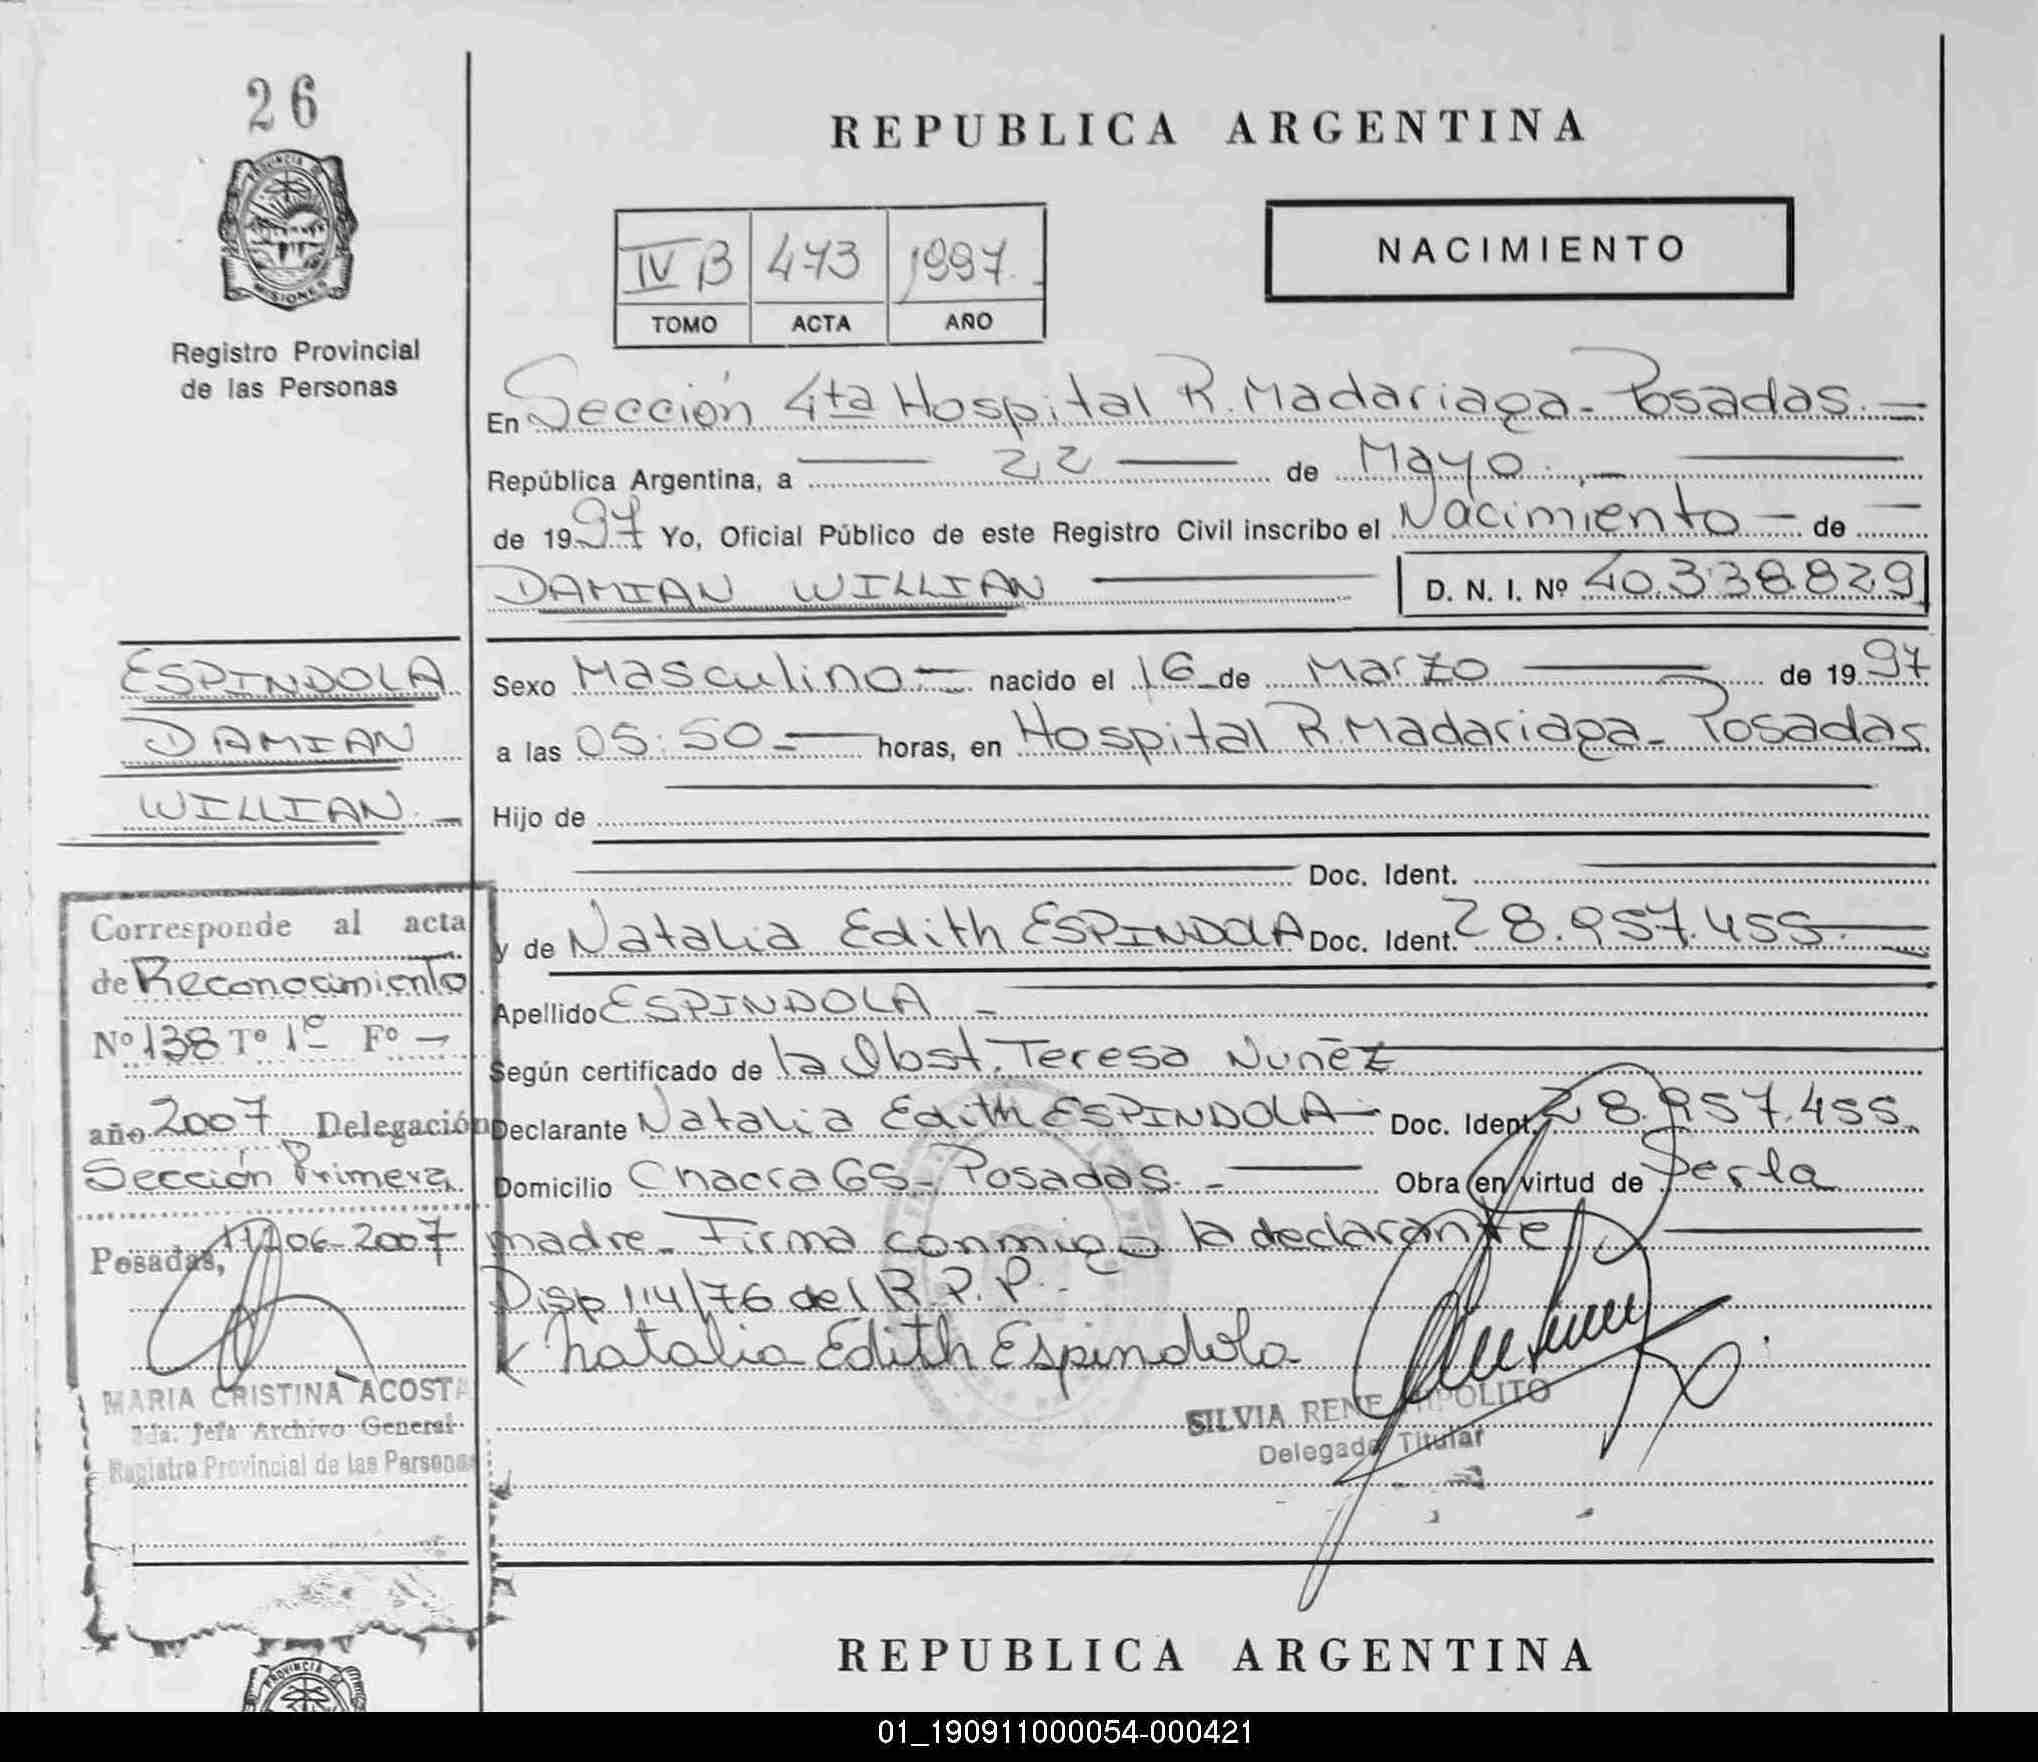 26
PROVINCIA DE
MISIONES
Registro Provincial
de las Personas
REPUBLICA ARGENTINA
IV B 473 1997
TOMO ACTA AÑO
NACIMIENTO
En Sección 4ta Hospital R. Madariaga - Posadas. -
República Argentina, a 22 de Mayo. -
de 1997 Yo, Oficial Público de este Registro Civil inscribo el Nacimiento - de
DAMIAN WILLIAN D. N. I. Nº 40.338.829
ESPINDOLA
DAMIAN
WILLIAN. -
Sexo Masculino - nacido el 16 de Marzo de 1997
a las 05:50 - horas, en Hospital R. Madariaga - Posadas
Hijo de
Doc. Ident.
y de Natalia Edith ESPINDOLA Doc. Ident. 28.957.455. -
Apellido ESPINDOLA -
Según certificado de la Obst. Teresa Nuñez
Declarante Natalia Edith ESPINDOLA - Doc. Ident. 28.957.455.
Domicilio Chacra 65 - Posadas. - Obra en virtud de Ser la
madre - Firma conmigo la declarante
Disp 114/76 del R.P.P. -
x Natalia Edith Espindola
SILVIA RENE HIPOLITO
Delegada Titular
Corresponde al acta
de Reconocimiento
Nº 138 Tº 1º Fº -
año 2007 Delegación
Sección Primera
Posadas, 11-06-2007
MARIA CRISTINA ACOSTA
2da. Jefa Archivo General
Registro Provincial de las Personas
REPUBLICA ARGENTINA
PROVINCIA
01_190911000054-000421